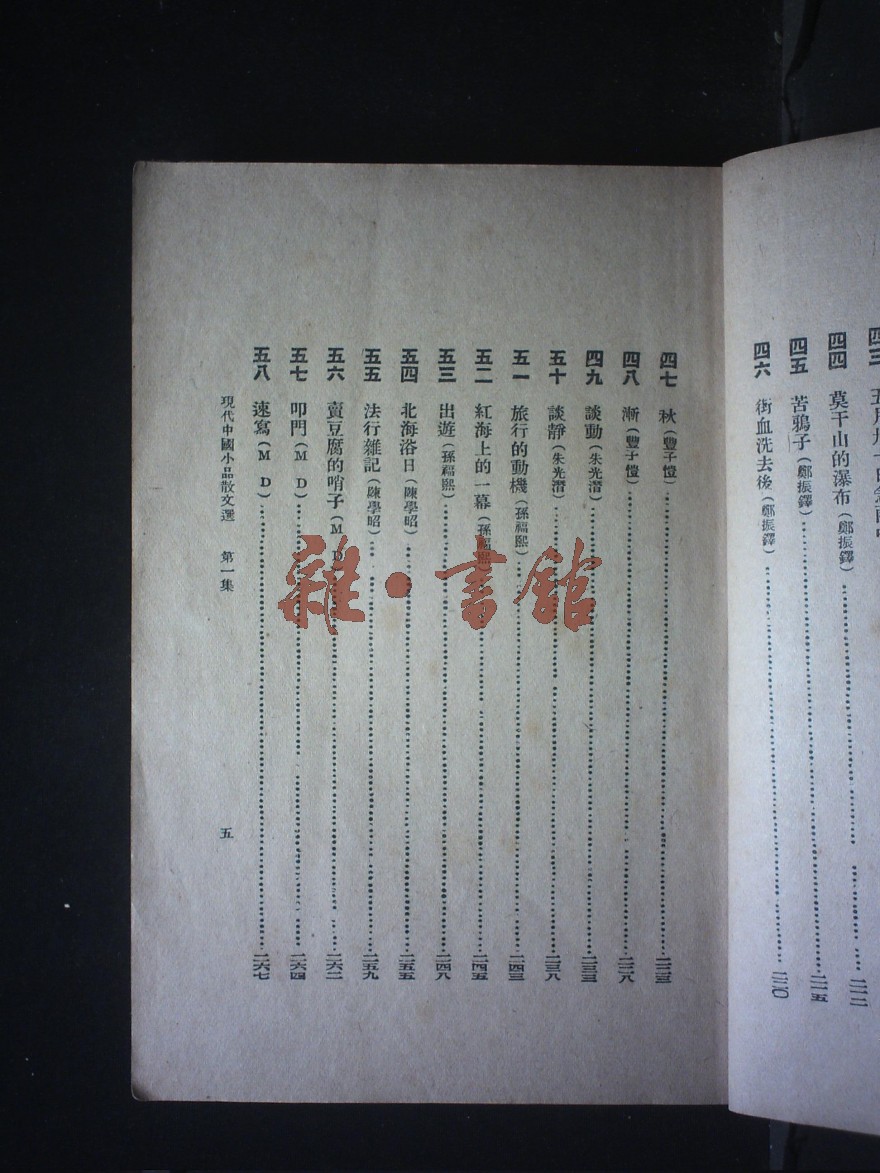 四四 莫干山的瀑布(鄭振鐸)……二一二
四五 苦鴉子(鄭振鐸)……二一五
四六 街血洗去後(鄭振鐸)……二二〇
四七 秋(豐子愷)……二二三
四八 漸(豐子愷)……二二八
四九 談動(朱光潛)……二三三
五十 談靜(朱光潛)……二三八
五一 旅行的動機(孫福熙)……二四三
五二 紅海上的一幕(孫福熙)……二四五
五三 出遊(孫福熙)……二四八
五四 北海浴日(陳學昭)……二五五
五五 法行雜記(陳學昭)……二五九
五六 賣豆腐的哨子(M D)……二六二
五七 叩門(M D)……二六四
五八 速寫(M D)……二六七
現代中國小品散文選 第一集 五
雜·書館